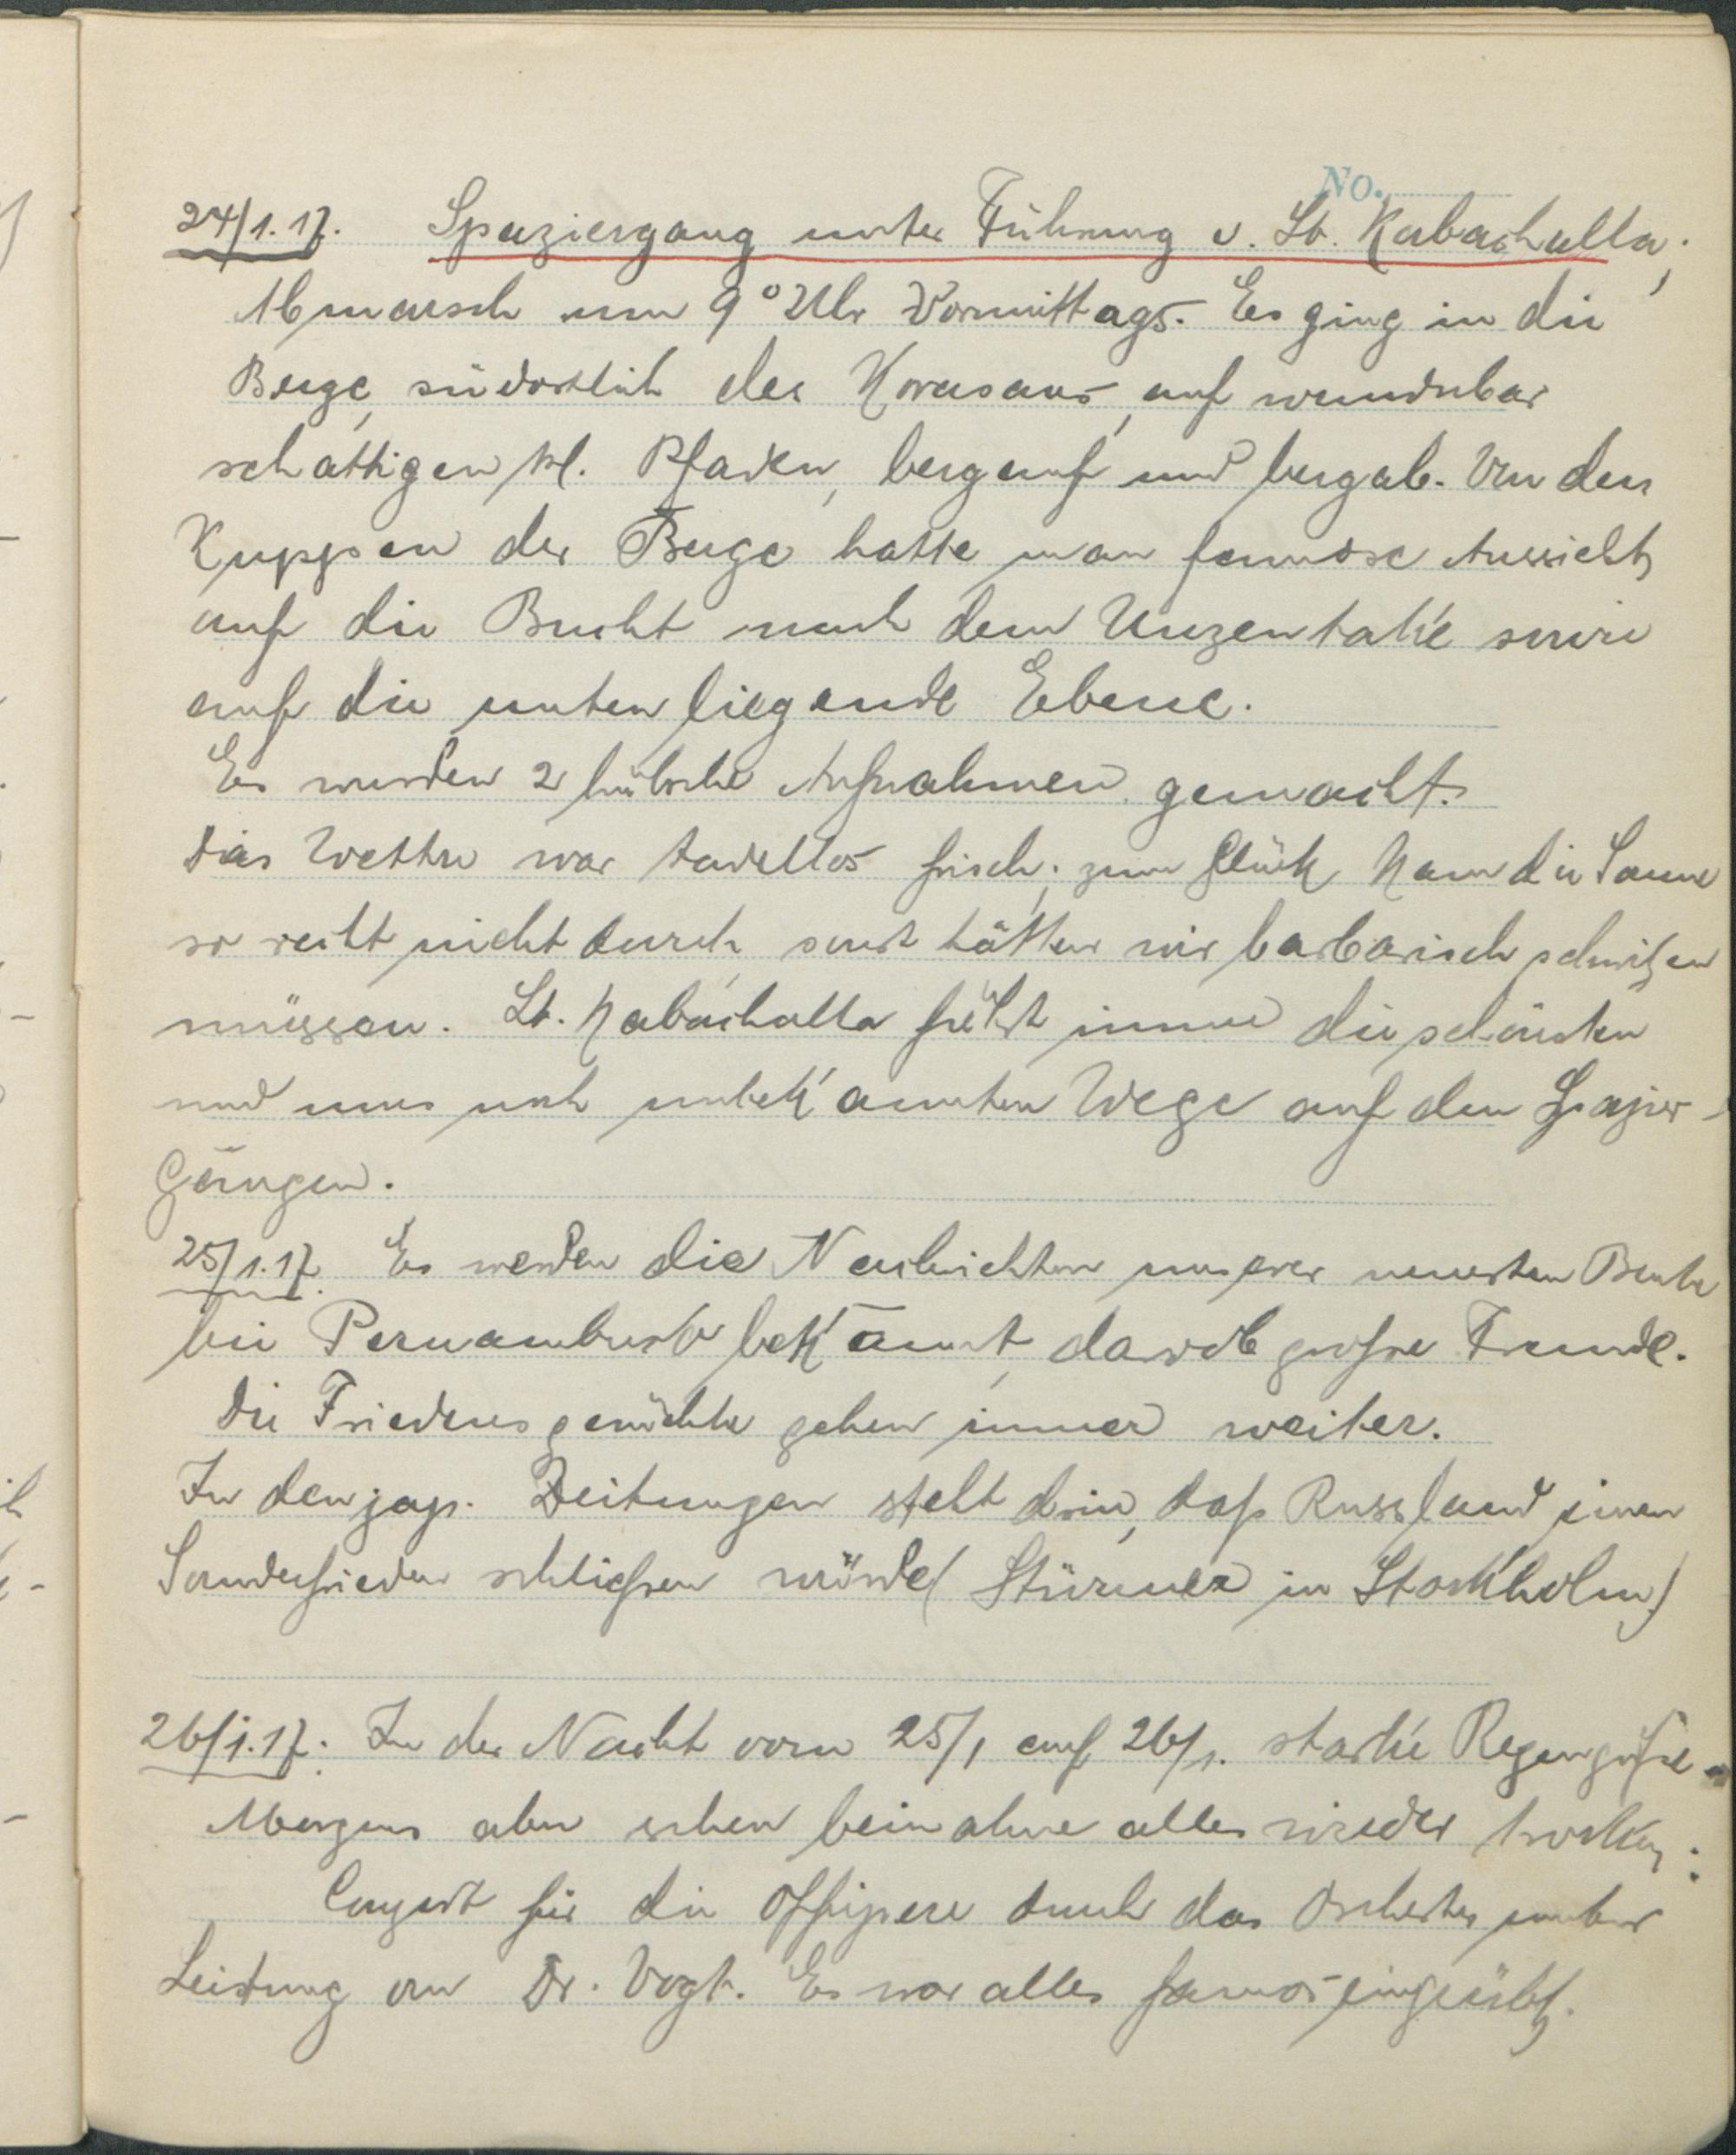 No.
24/1.17. Spaziergang unter Führung v. Lt. Kabachalla;
Abmarsch um 9° Uhr Vormittags. Es ging in die
Berge, südöstlich des Korasans, auf wunderbar
schattigen kl. Pfaden, bergauf und bergab. Von den
Kuppen der Berge hatte man famose Aussicht
auf die Bucht nach dem Unzentake sowie
auf die unten liegende Ebene.
Es wurden 2 hübsche Aufnahmen gemacht.
Das Wetter war tadellos frisch; zum Glück kam die Sonne
so recht nicht durch, sonst hätten wir barbarisch schwitzen
müssen. Lt. Kabachalla führt immer die schönsten
und uns noch unbekannten Wege auf den Spazier-
gängen.
25/1.17. Es werden die Nachrichten unserer neuesten Beute
bei Pernambuko bekannt, darob große Freude.
Die Friedensgerüchte gehen immer weiter.
In den jap. Zeitungen steht drin, daß Russland einen
Sonderfrieden schließen würde (Stürmer in Stockholm)
26/1.17. In der Nacht vom 25/1 auf 26/1. starke Regengüsse
Morgens aber schon beinahe alles wieder trocken;
Conzert für die Offiziere durch das Orchester unter
Leitung von Dr. Vogt. Es war alles famos eingeübt.